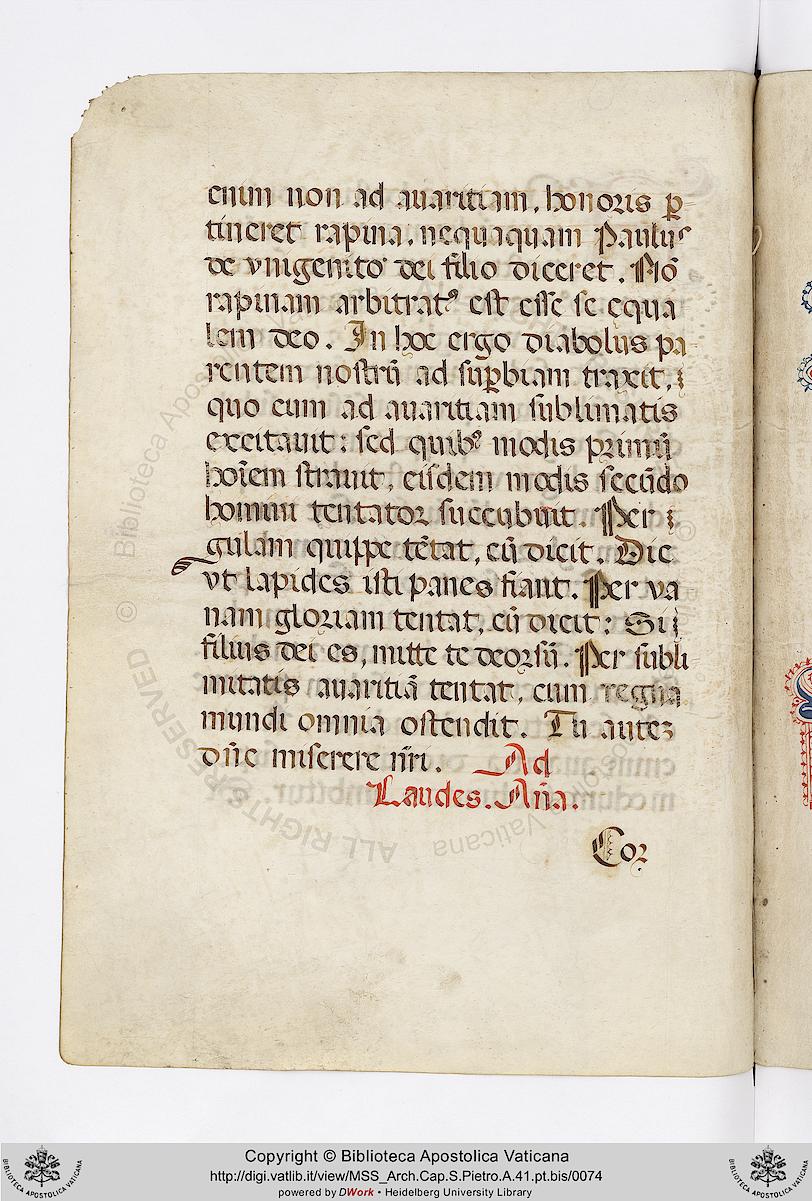 enim non ad auaritiam, honoris ꝑ-
tineret rapina, nequaquam Paulus
de vnigenito dei filio diceret. Nō
rapinam arbitratꝰ est esse se equa
lem deo. In hoc ergo diabolus pa
rentem nostrū ad suꝑbiam traxit,
quo eum ad auaritiam sublimatis
excitauit: sed quibꝰ modis primū
hoīem strauit, eisdem modis secūdo
homini tentator succubuit. Per
gulam quippe tētat, cū dicit. Dic
vt lapides isti panes fiant. Per va
nam gloriam tentat, cū dicit: Si
filius dei es, mitte te deorsū. Per subli
mitatis auaritiā tentat, cum regna
mundi omnia ostendit. Tu autez
dn̄e miserere nr̄i. Ad
Laudes. An̄a.
Cor
Copyright © Biblioteca Apostolica Vaticana
http://digi.vatlib.it/view/MSS_Arch.Cap.S.Pietro.A.41.pt.bis/0074
powered by DWork • Heidelberg University Library